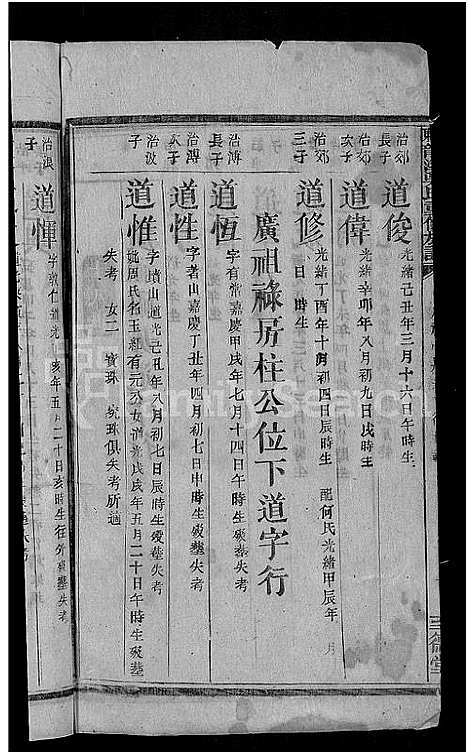 治郊長子
道俊
光緒己丑年三月十六日午時生
治郊次子
道偉
光緒辛卯年八月初九日戌時生
治郊三子
道修
光緒丁酉年十月初四日辰時生 配何氏光緒甲辰年 月
日 時生
廣祖祿房柱公位下道字行
治溥長子
道恆
字有常嘉慶甲戌年七月十四日午時生歿塟失考
治溥次子
道性
字著山嘉慶丁丑年四月初七日申時生歿塟失考
治波子
道惟
字墳山道光己孔年八月初七日辰時生歿塟失考
周氏行玉紅有元公女道光戊戌年五月二十日午時生歿塟
失考 女二 寶珠 珠俱失考所適
治浪子
道憚
字敦仁道光 亥年五月二十日亥時生往外歿塟失考
三脩堂
FamilySearch